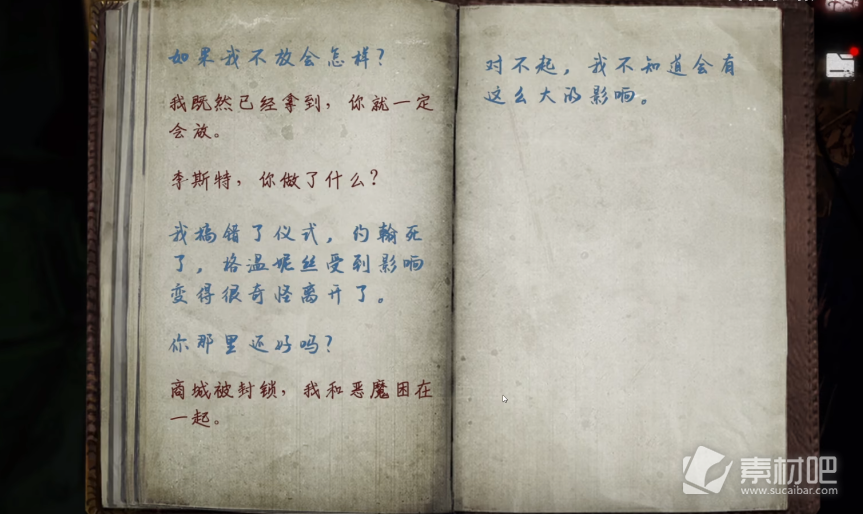 如果我不放会怎样？
我既然已经拿到，你就一定
会放。
李斯特，你做了什么？
我搞错了仪式，约翰死
了，格温妮丝受到影响
变得很奇怪离开了。
你那里还好吗？
商城被封锁，我和恶魔困在
一起。
对不起，我不知道会有
这么大的影响。
素材吧
www.sucaibar.com